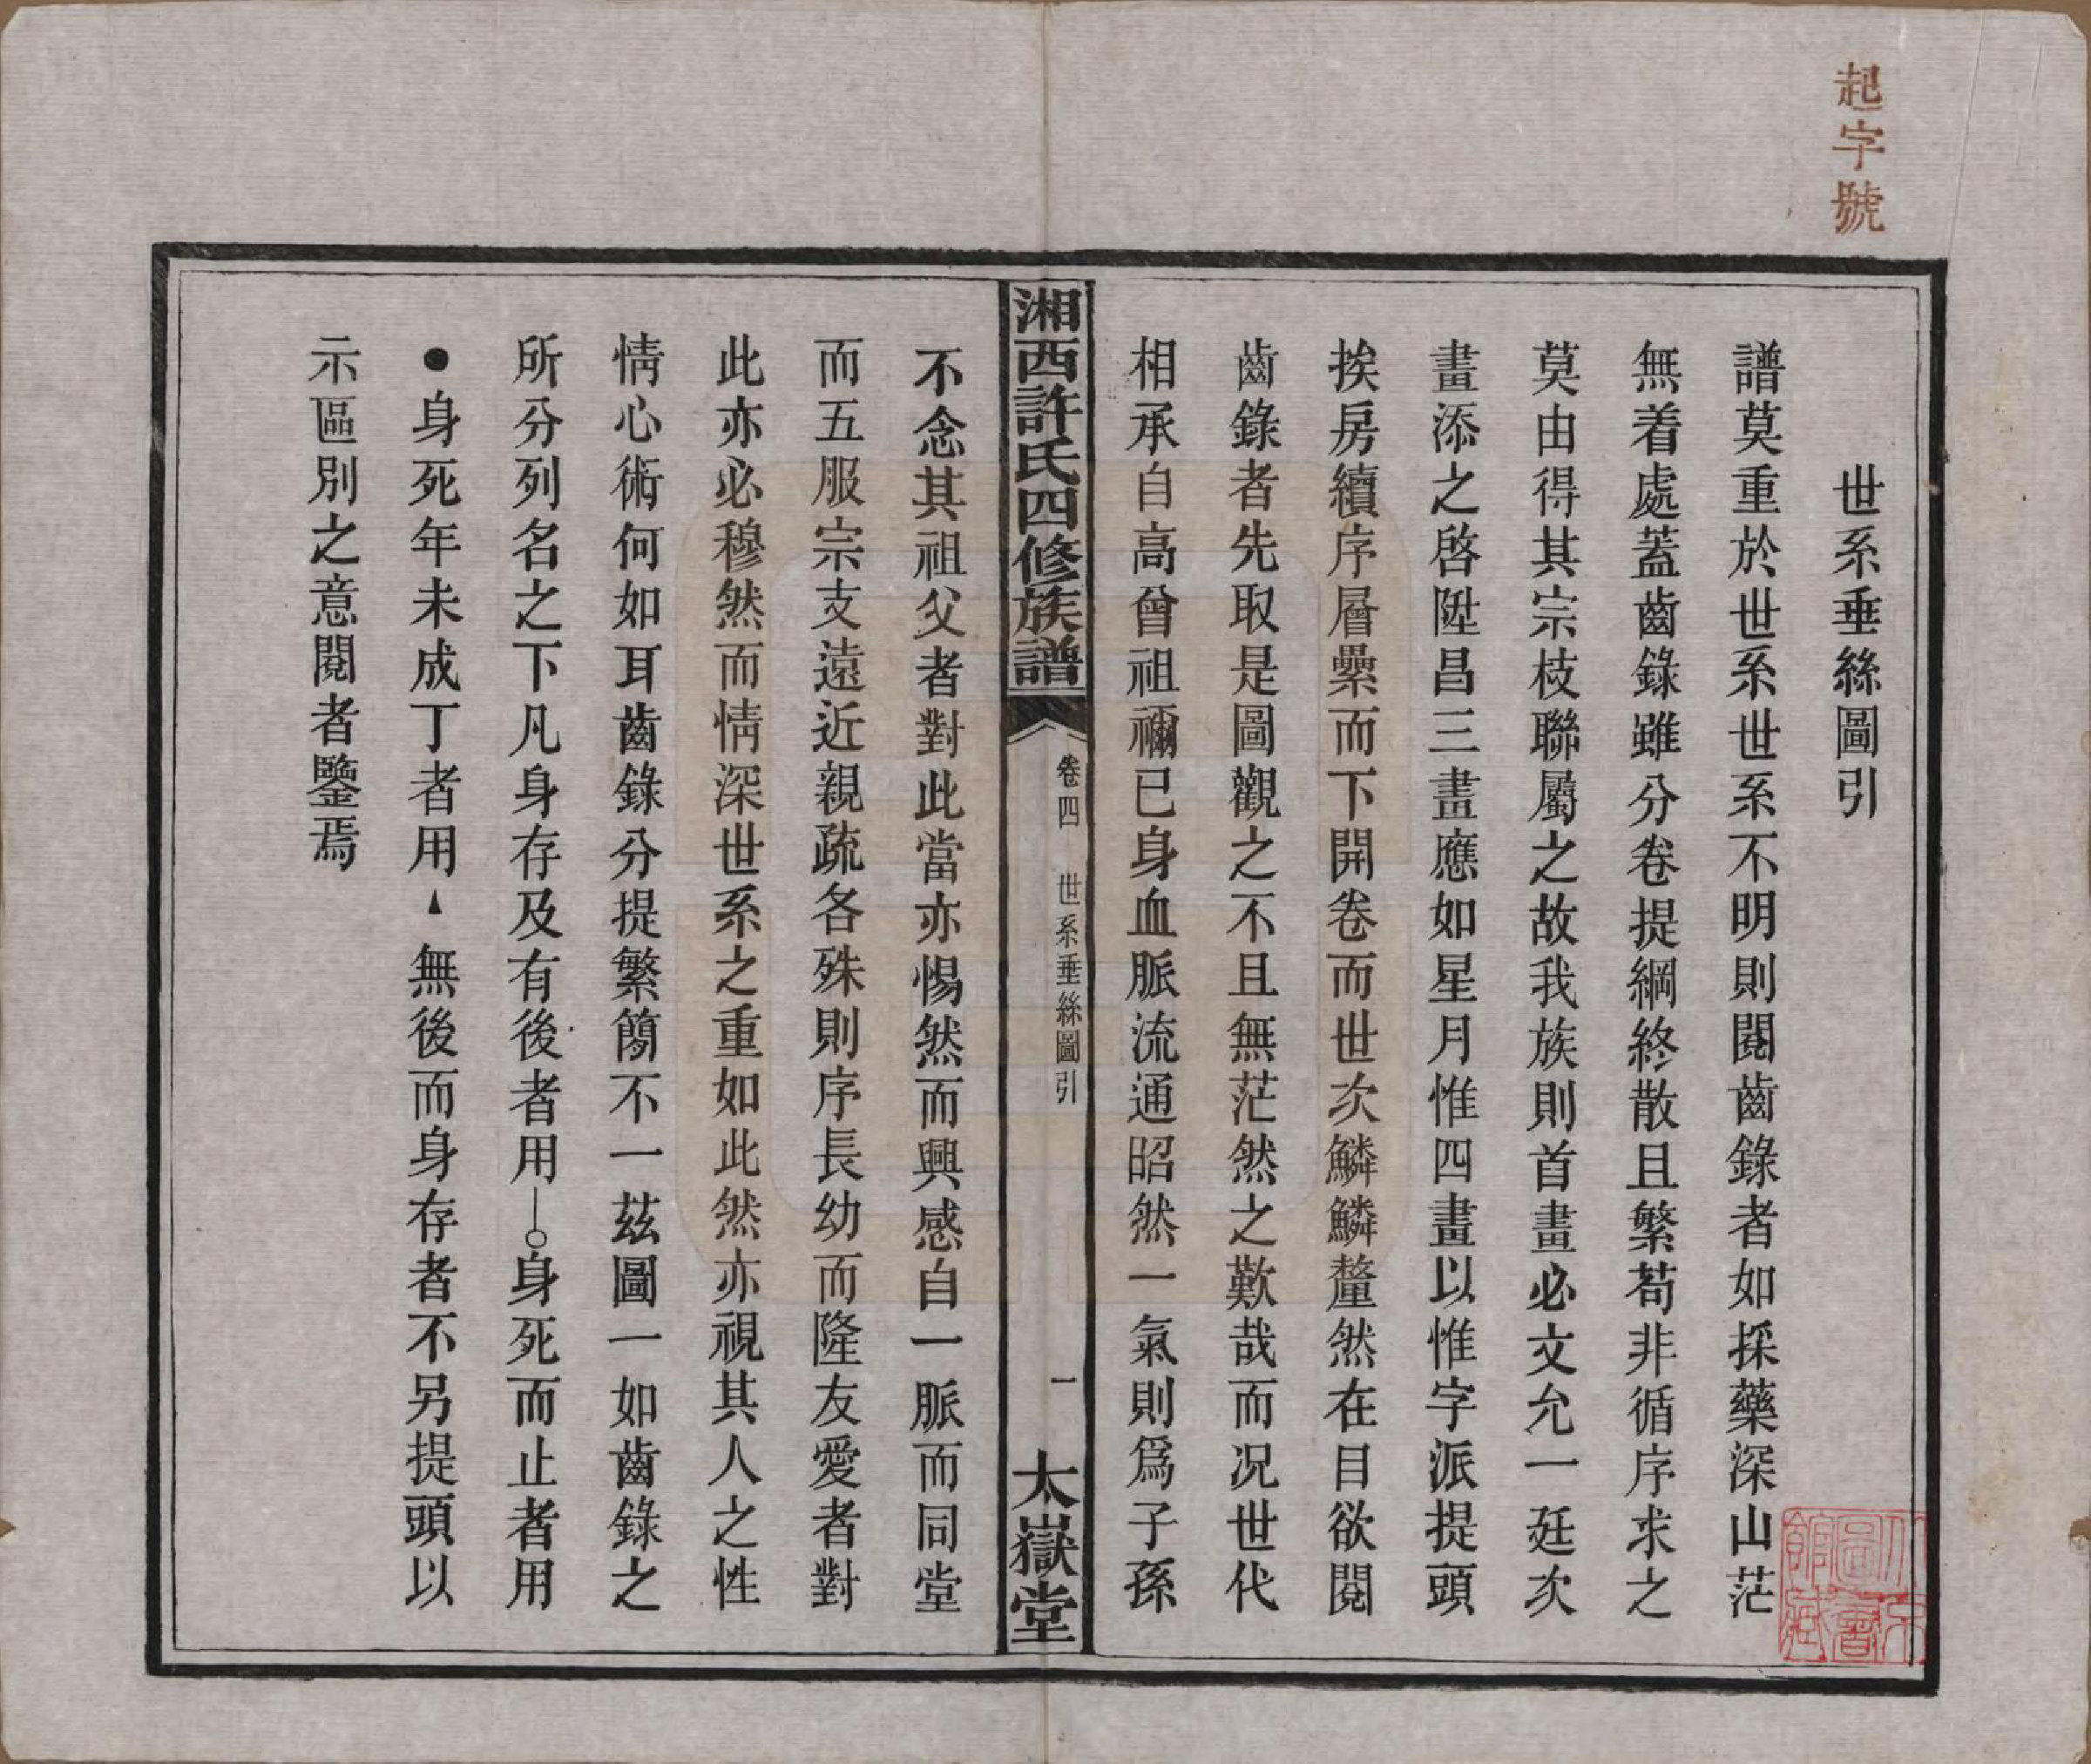 起字號
世系垂絲圖引
譜莫重於世系世系不明則閱齒錄者如採藥深山茫
無着處蓋齒錄雖分卷提綱終散且繁苟非循序求之
莫由得其宗枝聯屬之故我族則首畫必文允一廷次
畫添之啓陞昌三畫應如星月惟四畫以惟字派提頭
挨房續序層纍而下開卷而世次鱗鱗釐然在目欲閱
齒錄者先取是圖觀之不且無茫然之歎哉而况世代
相承自高曾祖禰已身血脈流通昭然一氣則爲子孫
湘西許氏四修族譜
卷四 世系垂絲圖引
一
太嶽堂
不念其祖父者對此當亦惕然而興感自一脈而同堂
而五服宗支遠近親疏各殊則序長幼而隆友愛者對
此亦必穆然而情深世系之重如此然亦視其人之性
情心術何如耳齒錄分提繁簡不一茲圖一如齒錄之
所分列名之下凡身存及有後者用｜○身死而止者用
●身死年未成丁者用▲無後而身存者不另提頭以
示區別之意閱者鑒焉